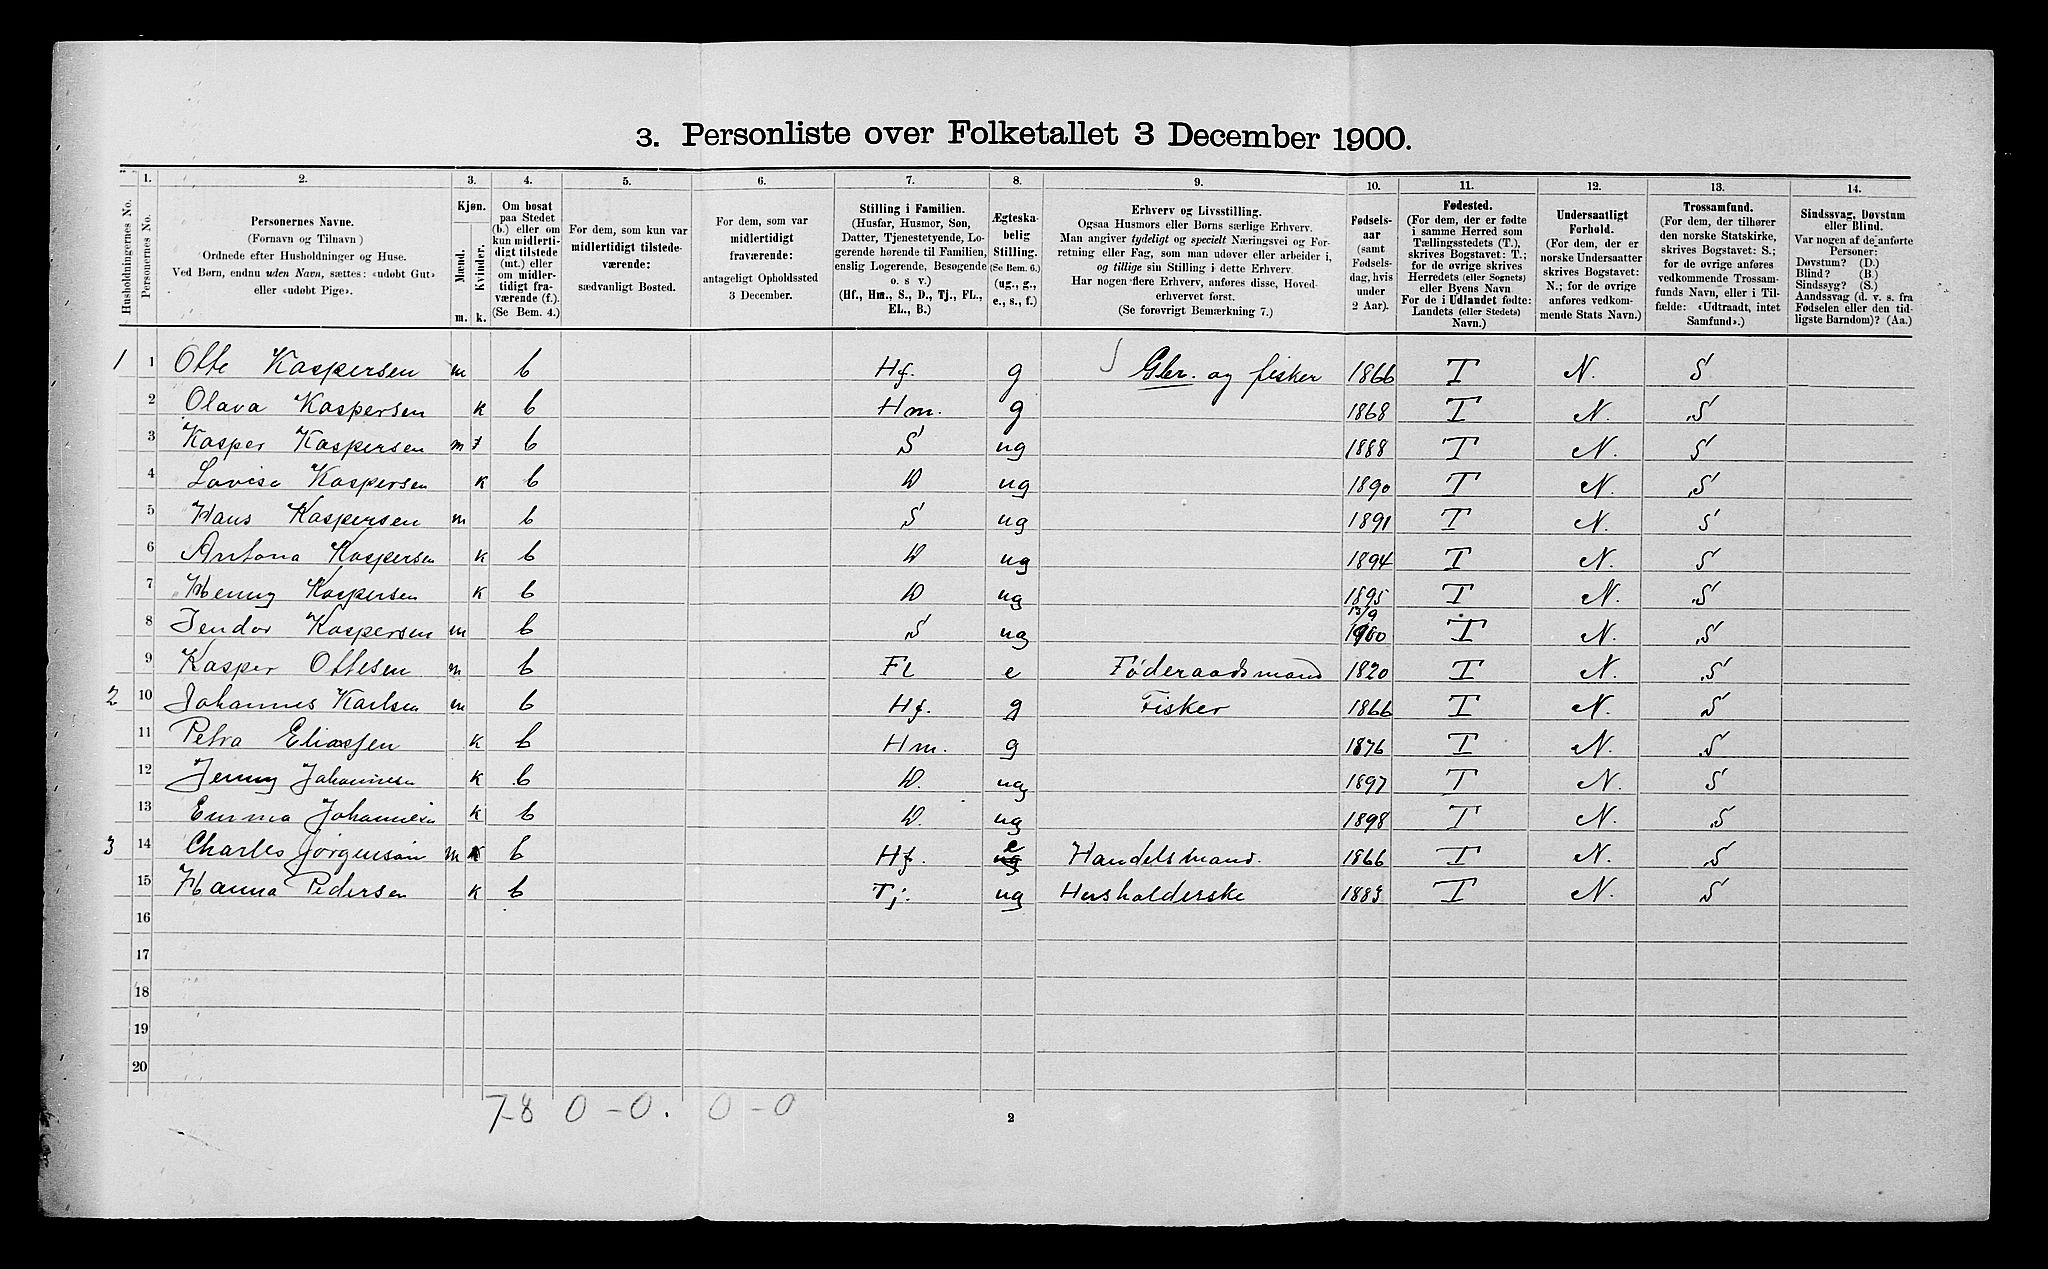 3. Personliste over Folketallet 3 December 1900.
Husholdningernes No.
1. Personernes No.
2. Personernes Navne. (Fornavn og Tilnavn) Ordnede efter Husholdninger og Huse. Ved Børn, endnu uden Navn, sættes: «udøbt Gut» eller «udøbt Pige».
3. Kjøn. Mænd. m. Kvinder. k.
4. Om bosat paa Stedet (b.) eller om kun midlertidigt tilstede (mt.) eller om midlertidigt fraværende (f.). (Se Bem. 4.)
5. For dem, som kun var midlertidigt tilstedeværende: sædvanligt Bosted.
6. For dem, som var midlertidigt fraværende: antageligt Opholdssted 3 December.
7. Stilling i Familien. (Husfar, Husmor, Søn, Datter, Tjenestetyende, Logerende hørende til Familien, enslig Logerende, Besøgende o. s v.) (Hf., Hm., S., D., Tj., FL., EL., B.)
8. Ægteskabelig Stilling. (Se Bem. 6.) (ug., g., e., s., f.)
9. Erhverv og Livsstilling. Ogsaa Husmors eller Børns særlige Erhverv. Man angiver tydeligt og specielt Næringsvei og Forretning eller Fag, som man udøver eller arbeider i, og tillige sin Stilling i dette Erhverv. Har nogen flere Erhverv, anføres disse, Hovederhvervet først. (Se forøvrigt Bemærkning 7.)
10. Fødselsaar (samt Fødselsdag, hvis under 2 Aar).
11. Fødested. (For dem, der er fødte i samme Herred som Tællingsstedets (T.), skrives Bogstavet: T.; for de øvrige skrives Herredets (eller Sognets) eller Byens Navn For de i Udlandet fødte: Landets (eller Stedets) Navn.)
12. Undersaatligt Forhold. (For dem, der er norske Undersaatter skrives Bogstavet: N.; for de øvrige anføres vedkommende Stats Navn.)
13. Trossamfund. (For dem, der tilhører den norske Statskirke, skrives Bogstavet: S.; for de øvrige anføres vedkommende Trossamfunds Navn, eller i Tilfælde: «Udtraadt, intet Samfund».)
14. Sindssvag, Døvstum eller Blind. Var nogen af de anførte Personer: Døvstum? (D.) Blind? (B.) Sindssyg? (S.) Aandssvag (d. v. s. fra Fødselen eller den tidligste Barndom)? (Aa.)
1 1 Otte Kaspersen m b Hf. g Gbr. og fisker 1866 T N. S
2 Olava Kaspersen k b Hm. g 1868 T N. S
3 Kasper Kaspersen m b S ug 1888 T N. S
4 Lovise Kaspersen k b D ug 1890 T N. S
5 Hans Kaspersen m b S ug 1891 T N. S
6 Antona Kaspersen k b D ug 1894 T N. S
7 Henny Kaspersen k b D ug 1895 T N. S
8 Jendor Kaspersen m b S ug 13/9 1900 T N. S
9 Kasper Ottesen m b FL e Føderaadsmand 1820 T N. S
2 10 Johannes Karlsen m b Hf. g Fisker 1866 T N. S
11 Petra Eliassen k b Hm. g 1876 T N. S
12 Jenny Johannesen k b D. ug 1897 T N. S
13 Emma Johannesen k b D. ug 1898 T N. S
3 14 Charles Jørgensøn m b Hf. e ug Handelsmand. 1866 T N. S
15 Hanna Pedersen k b Tj. ug Husholderske 1883 T N. S
16
17
18
19
20
7-8 0-0. 0-0
2